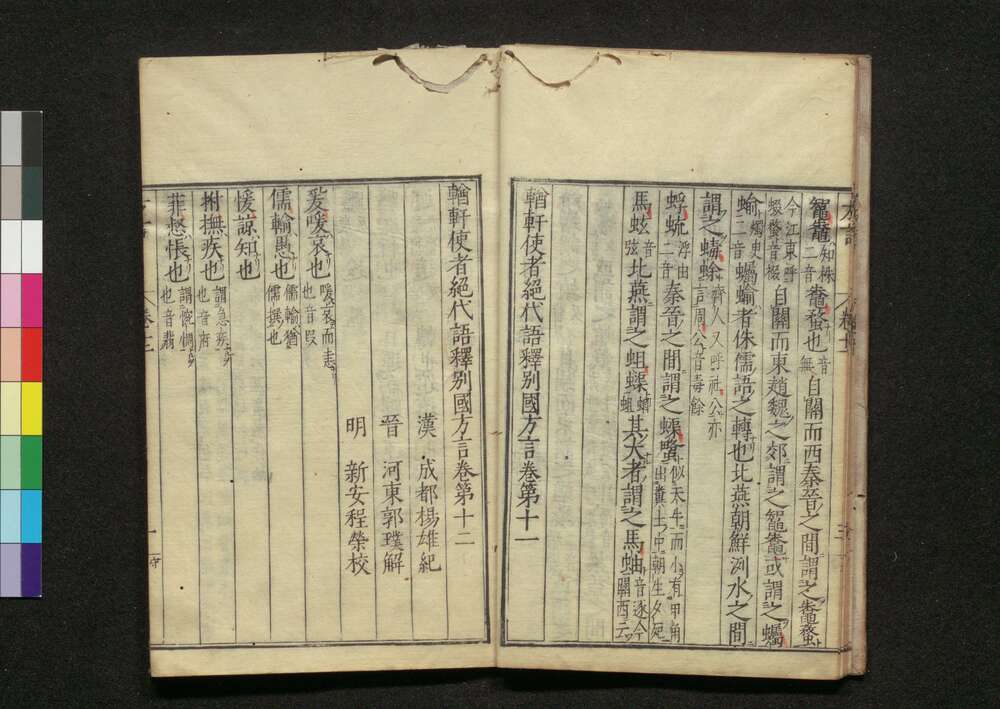 鼅鼄知株二音鼄蝥也音無自關而西秦晉之間謂之鼄蝥
今江東呼蝃蝥音掇自關而東趙魏之郊謂之鼅鼄或謂之蠾
蝓蠾臾二音蠾蝓者侏儒語之轉也北燕朝鮮洌水之間
謂之蝳蜍齊人又呼社公亦言周公音毒餘
蜉蝣浮由二音秦晉之間謂之蟝䗁似天牛而小有甲角出糞土中朝生夕死
馬蚿音弦北燕謂之蛆蟝蝍蛆其大者謂之馬蚰音逐今關西云
輶軒使者絕代語釋別國方言卷第十一
輶軒使者絕代語釋別國方言卷第十二
漢 成都楊雄紀
晉 河東郭璞解
明 新安程榮校
爰喛哀也喛哀而恚也音段
儒輸愚也儒輸猶儒撰也
愋諒知也
拊撫疾也謂急疾也音府
菲怒悵也謂惋惆也音翡